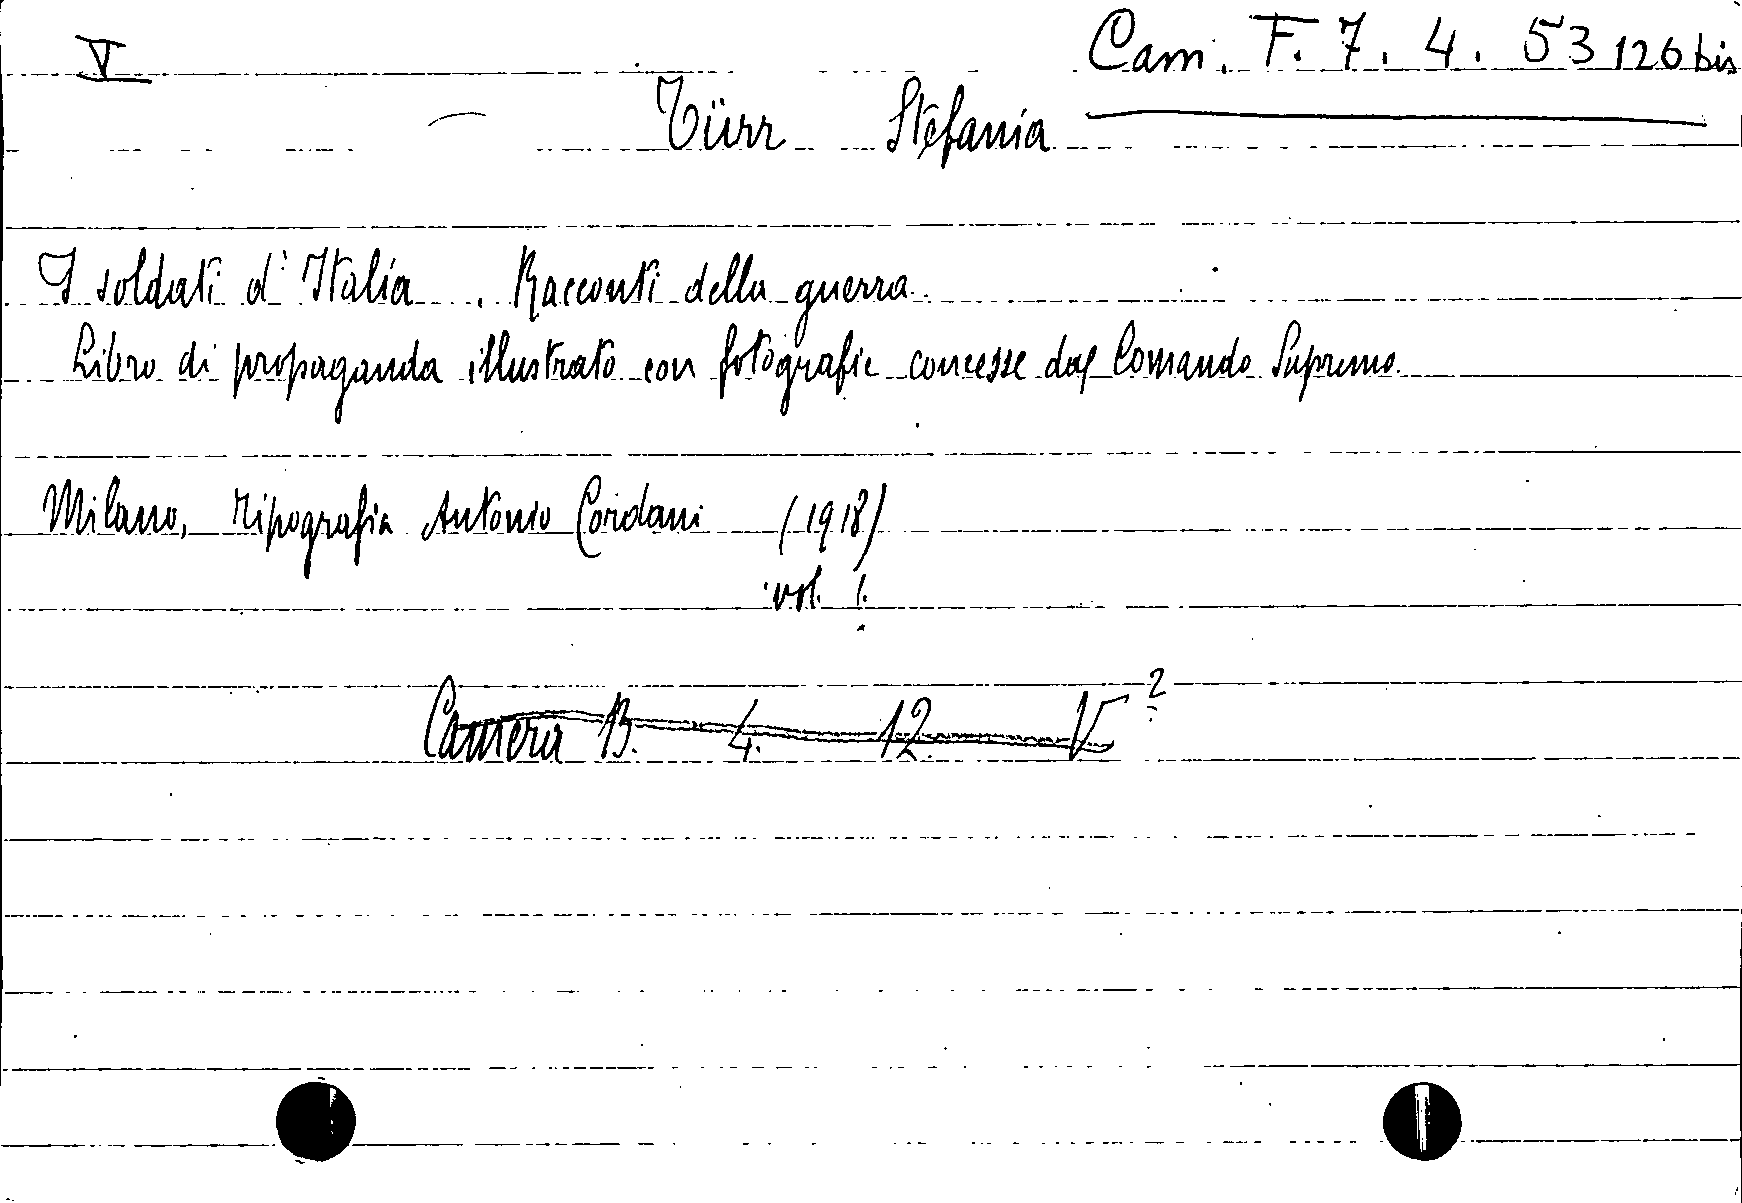 V
Cam. F. 7. 4. 53 126 bis
Türr Stefania
I soldati d'Italia. Racconti della guerra.
Libro di propaganda illustrato con fotografie concesse dal Comando Supremo.
Milano, Tipografia Antonio Cordani (1918)
vol. 1.
Camera B. 4. 12. V 2